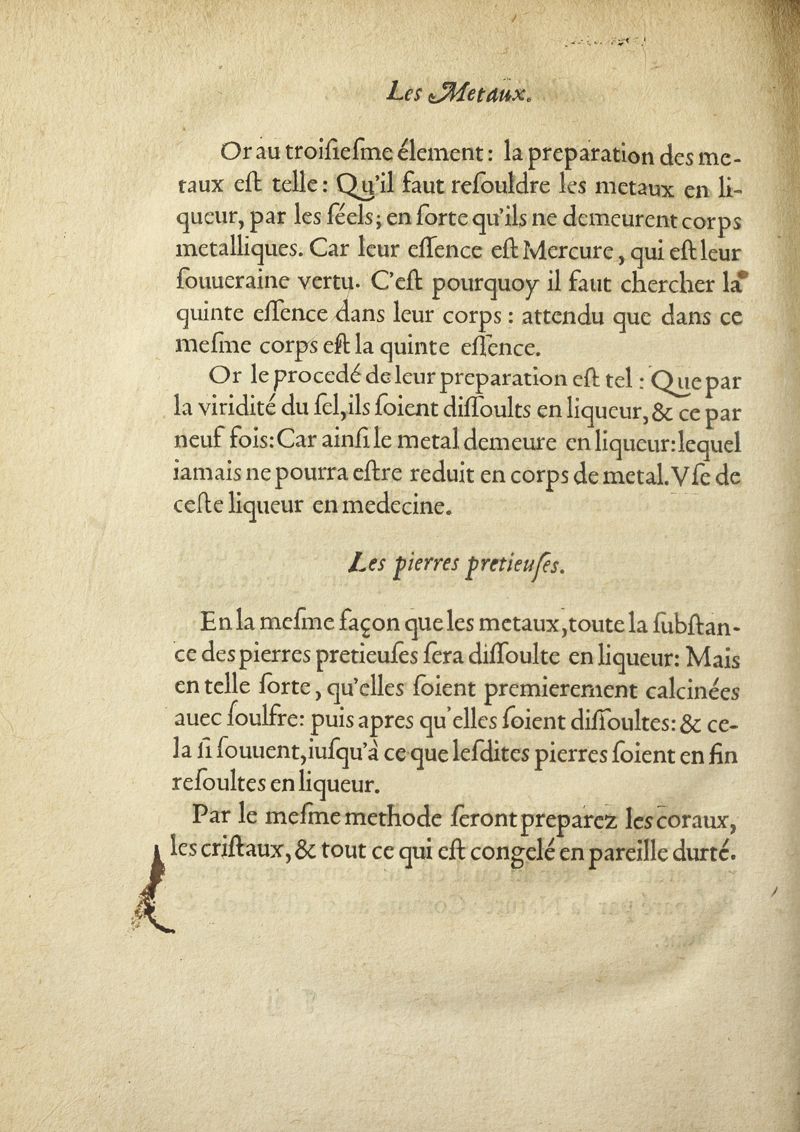 Les Metaux.
Or au troiſieſme élement : la preparation des me-
taux eſt telle : Qu'il faut reſouldre les metaux en li-
queur, par les ſéels ; en ſorte qu'ils ne demeurent corps
metalliques. Car leur eſſence eſt Mercure, qui eſt leur
ſouueraine vertu. C'eſt pourquoy il faut chercher la
quinte eſſence dans leur corps : attendu que dans ce
meſme corps eſt la quinte eſſence.
Or le procedé de leur preparation eſt tel : Que par
la viridité du ſel, ils ſoient diſſoults en liqueur, & ce par
neuf fois: Car ainſi le metal demeure en liqueur: lequel
iamais ne pourra eſtre reduit en corps de metal. Vſe de
ceſte liqueur en medecine.
Les pierres pretieuſes.
En la meſme façon que les metaux, toute la ſubſtan-
ce des pierres pretieuſes ſera diſſoulte en liqueur: Mais
en telle ſorte, qu'elles ſoient premierement calcinées
auec ſoulfre: puis apres qu'elles ſoient diſſoultes: & ce-
la ſi ſouuent, iuſqu'à ce que leſdites pierres ſoient en fin
reſoultes en liqueur.
Par le meſme methode ſeront preparez les coraux,
les criſtaux, & tout ce qui eſt congelé en pareille durté.